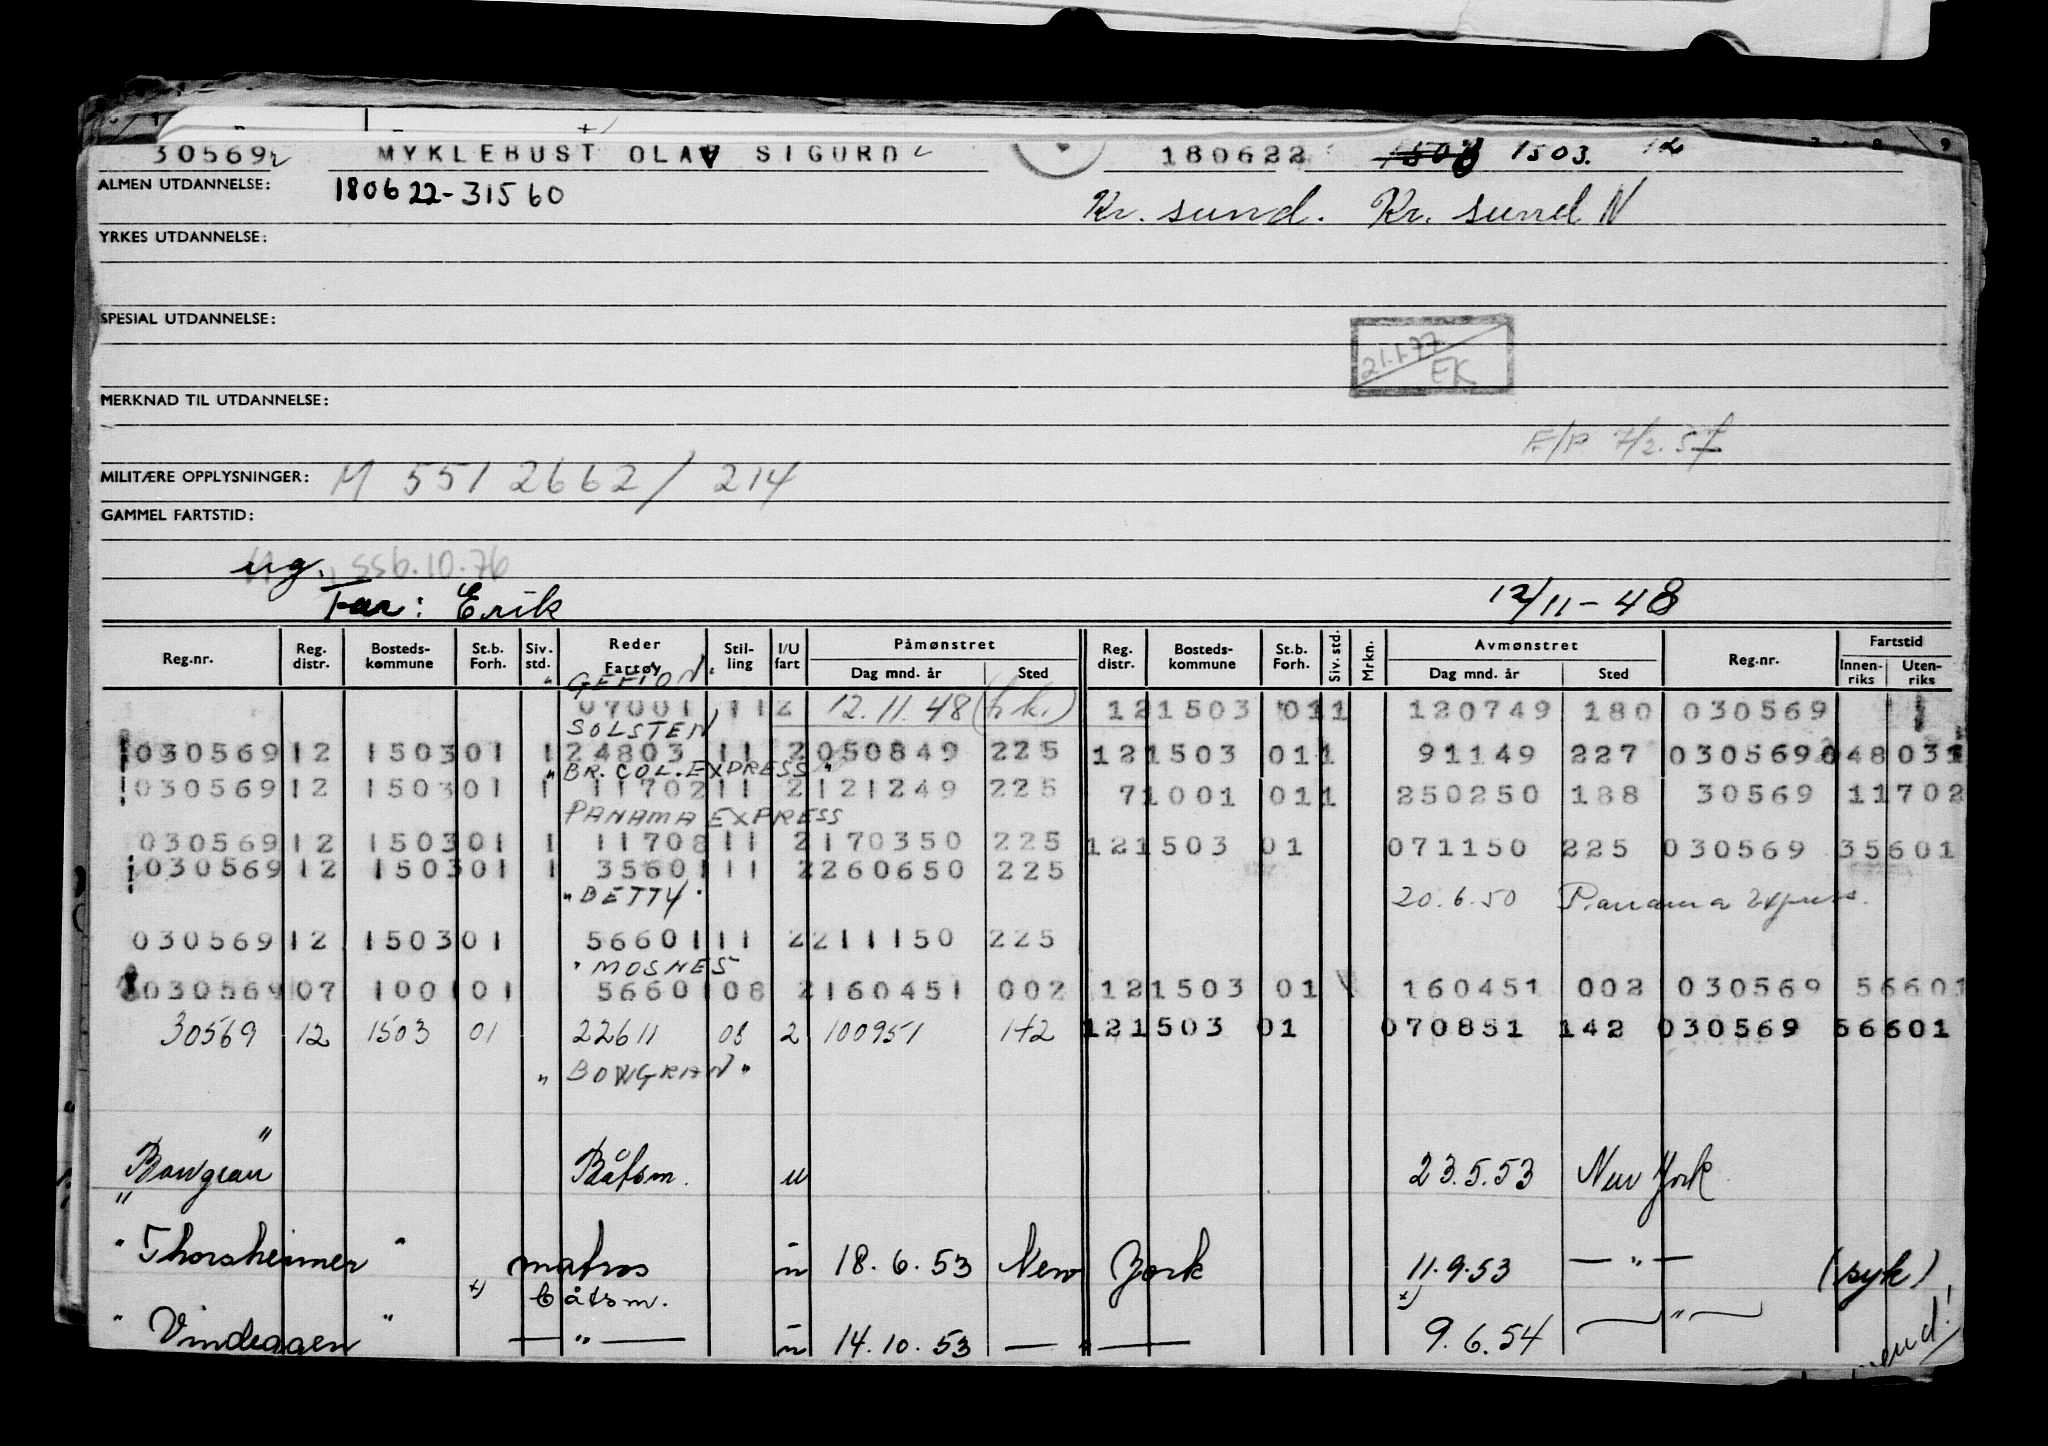 30569 MYKLEBUST OLAV SIGURD 180622 1503. 12
ALMEN UTDANNELSE: 180622-31560 Kr. sund. Kr. sund N
YRKES UTDANNELSE:
SPESIAL UTDANNELSE:
21.1.77 EK
MERKNAD TIL UTDANNELSE:
F/P 7/2.57
MILITÆRE OPPLYSNINGER: M 5512662/214
GAMMEL FARTSTID:
ug. 556.10.76
Far: Erik 12/11-48
Reg.nr. Reg. distr. Bosteds-kommune St.b. Forh. Siv. std. Reder Fartøy Stil-ling I/U fart Påmønstret Dag mnd. år Sted Reg. distr. Bosteds-kommune St.b. Forh. Siv. std. Mrkn. Avmønstret Dag mnd. år Sted Reg.nr. Fartstid Innen-riks Uten-riks
"GEFION"
07001 11 2 12.11.48 (h.k.) 12 1503 01 1 120749 180 030569
SOLSTEN
030569 12 1503 01 1 24803 11 2 050849 225 12 1503 01 1 91149 227 030569 048 031
"BR. COL. EXPRESS"
030569 12 1503 01 1 11702 11 2 121249 225 7 1001 01 1 250250 188 30569 11702
PANAMA EXPRESS
030569 12 1503 01 1 11708 11 2 170350 225 12 1503 01 071150 225 030569 35601
030569 12 1503 01 1 35601 11 2 260650 225
"BETTY" 20.6.50 Panama Express.
030569 12 1503 01 56601 11 2 211150 225
"MOSNES"
030569 07 1001 01 56601 08 2 160451 002 12 1503 01 160451 002 030569 56601
30569 12 1503 01 22611 08 2 100951 142 12 1503 01 070851 142 030569 56601
"BOWGRAN"
"Bowgran" Båtsm. u 23.5.53 New York
"Thorsheimer" matros u 18.6.53 New York 11.9.53 — " — (syk)
x) båtsm. x)
"Vindeggen" — " — u 14.10.53 — " — 9.6.54 — " —